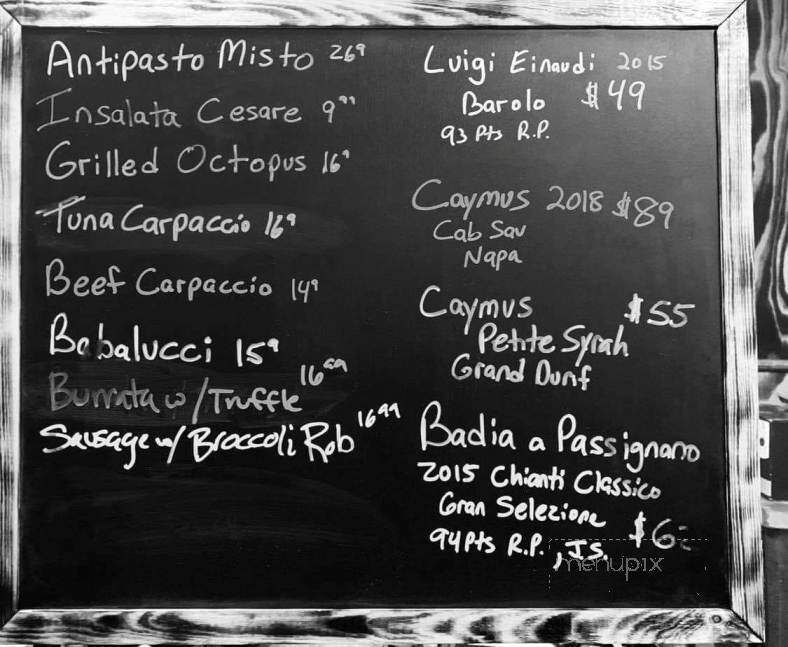 Antipasto Misto 26⁹
Insalata Cesare 9⁹⁹
Grilled Octopus 16⁹
Tuna Carpaccio 16⁹
Beef Carpaccio 14⁹
Babalucci 15⁹
Burrata w/Truffle 16⁹⁹
Sausage w/ Broccoli Rob 16⁹⁹
Luigi Einaudi 2015
Barolo $49
93 Pts R.P.
Caymus 2018 $89
Cab Sav
Napa
Caymus $55
Petite Syrah
Grand Durif
Badia a Passignano
2015 Chianti Classico
Gran Selezione
94 Pts R.P., J.S.
menupix